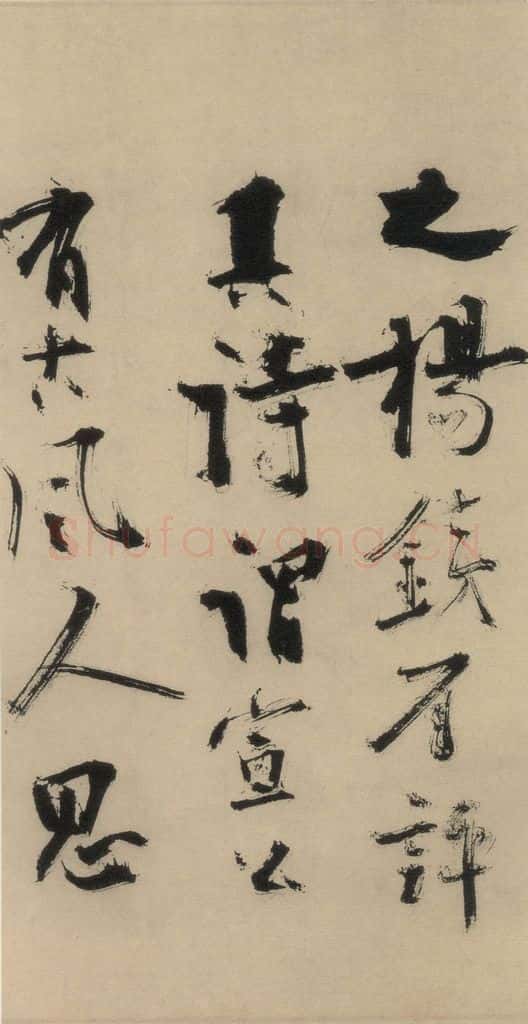 之楊鐵有評
其詩謂宣公
有古風人思
Shufawang.CN